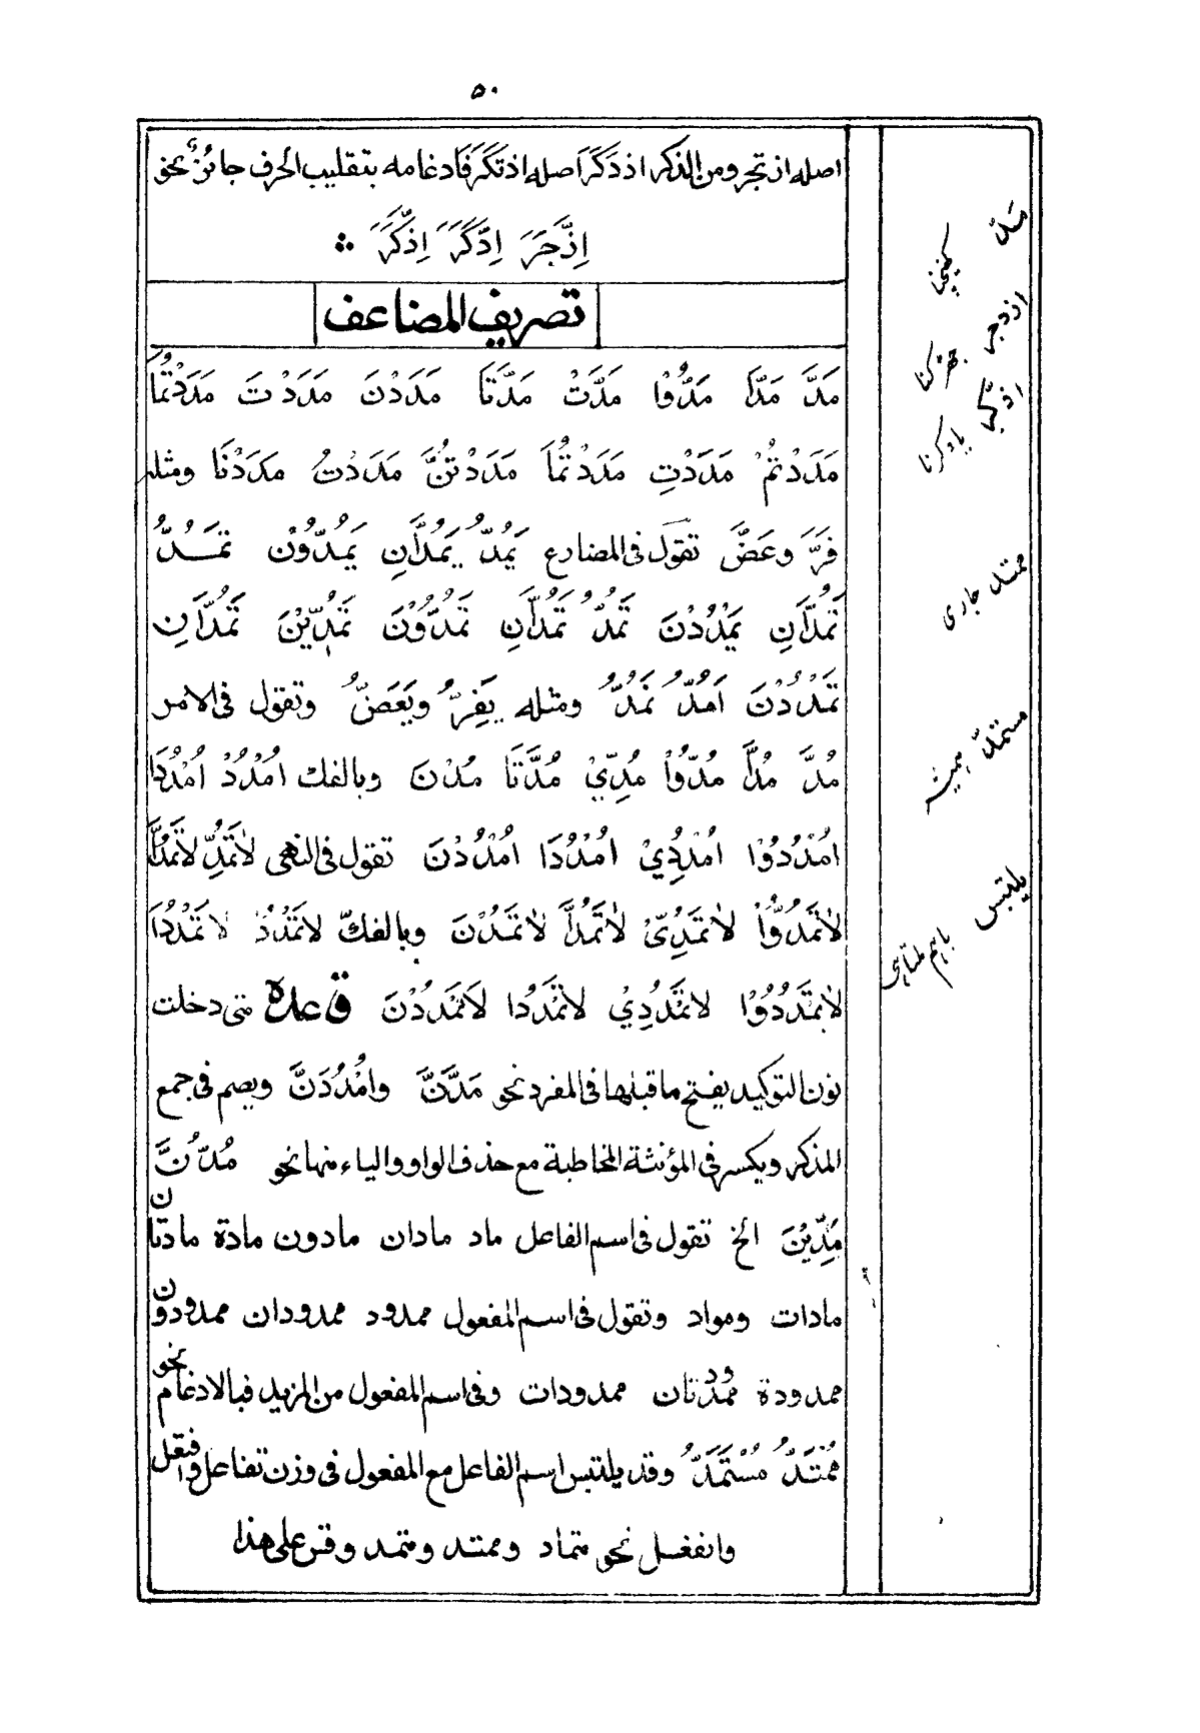 ۵۰
اصله ازتجر ومن الذكر اذدَكَرَ اصله اذتَكَرَ فَادغامه بتقليب الحرف جائزٌ نحو
اِذَّجَرَ اِدَّكَرَ اِذَّكَرَ
تصريف المضاعف
مَدَّ مَدَّا مَدُّوْا مَدَّتْ مَدَّتَا مَدَدْنَ مَدَدْتَ مَدَدْتُمَا
مَدَدْتُمْ مَدَدْتِ مَدَدْتُمَا مَدَدْتُنَّ مَدَدْتُ مَدَدْنَا ومثله
فَرَّ وعَضَّ تقول فى المضارع يَمُدُّ يَمُدَّانِ يَمُدُّوْنَ تَمُدُّ
تَمُدَّانِ يَمْدُدْنَ تَمُدُّ تَمُدَّانِ تَمُدُّوْنَ تَمُدِّيْنَ تَمُدَّانِ
تَمْدُدْنَ اَمُدُّ نَمُدُّ ومثله يَفِرُّ ويَعَضُّ وتقول فى الامر
مُدَّ مُدَّا مُدُّوْا مُدِّيْ مُدَّتَا مُدْنَ وبالفك اُمْدُدْ اُمْدُدَا
اُمْدُدُوْا اُمْدُدِيْ اُمْدُدَا اُمْدُدْنَ تقول فى النهى لاَتَمُدِّ لاَتَمُدَّا
لاَتَمُدُّوْا لاَتَمُدِّىْ لاَتَمُدَّا لاَتَمُدْنَ وبالفكّ لاتَمْدُدْ لاتَمْدُدَا
لاتَمْدُدُوْا لاتَمْدُدِيْ لاتَمْدُدَا لاَتَمْدُدْنَ قاعدة متى دخلت
نون التوكيد يفتح ماقبلها فى المفرد نحو مَدَّنَّ وامْدُدَنَّ ويضم فى جمع
المذكر ويكسر فى المؤنثة المخاطبة مع حذف الواو والياء منها نحو مُدُّنَّ
مَدِّيْنَ الخ تقول فى اسم الفاعل ماد مادان مادون مادة مادتان
مادات ومواد وتقول فى اسم المفعول ممدود ممدودان ممدودون
ممدودة ممدودتان ممدودات وفى اسم المفعول من المزيد فبالادغام نحو
مُمْتَدٌّ مُسْتَمَدٌّ وقد يلتبس اسم الفاعل مع المفعول فى وزن تفاعل وافتعل
وانفعل نحو متماد وممتد ومنمد وقس على هذا
مدّ
كھنچنا
ازدجر
جھڑكنا
اذكر
يادكرنا
ممتد جارى
مستمدّ
يلتبس
باہم ملتاہى